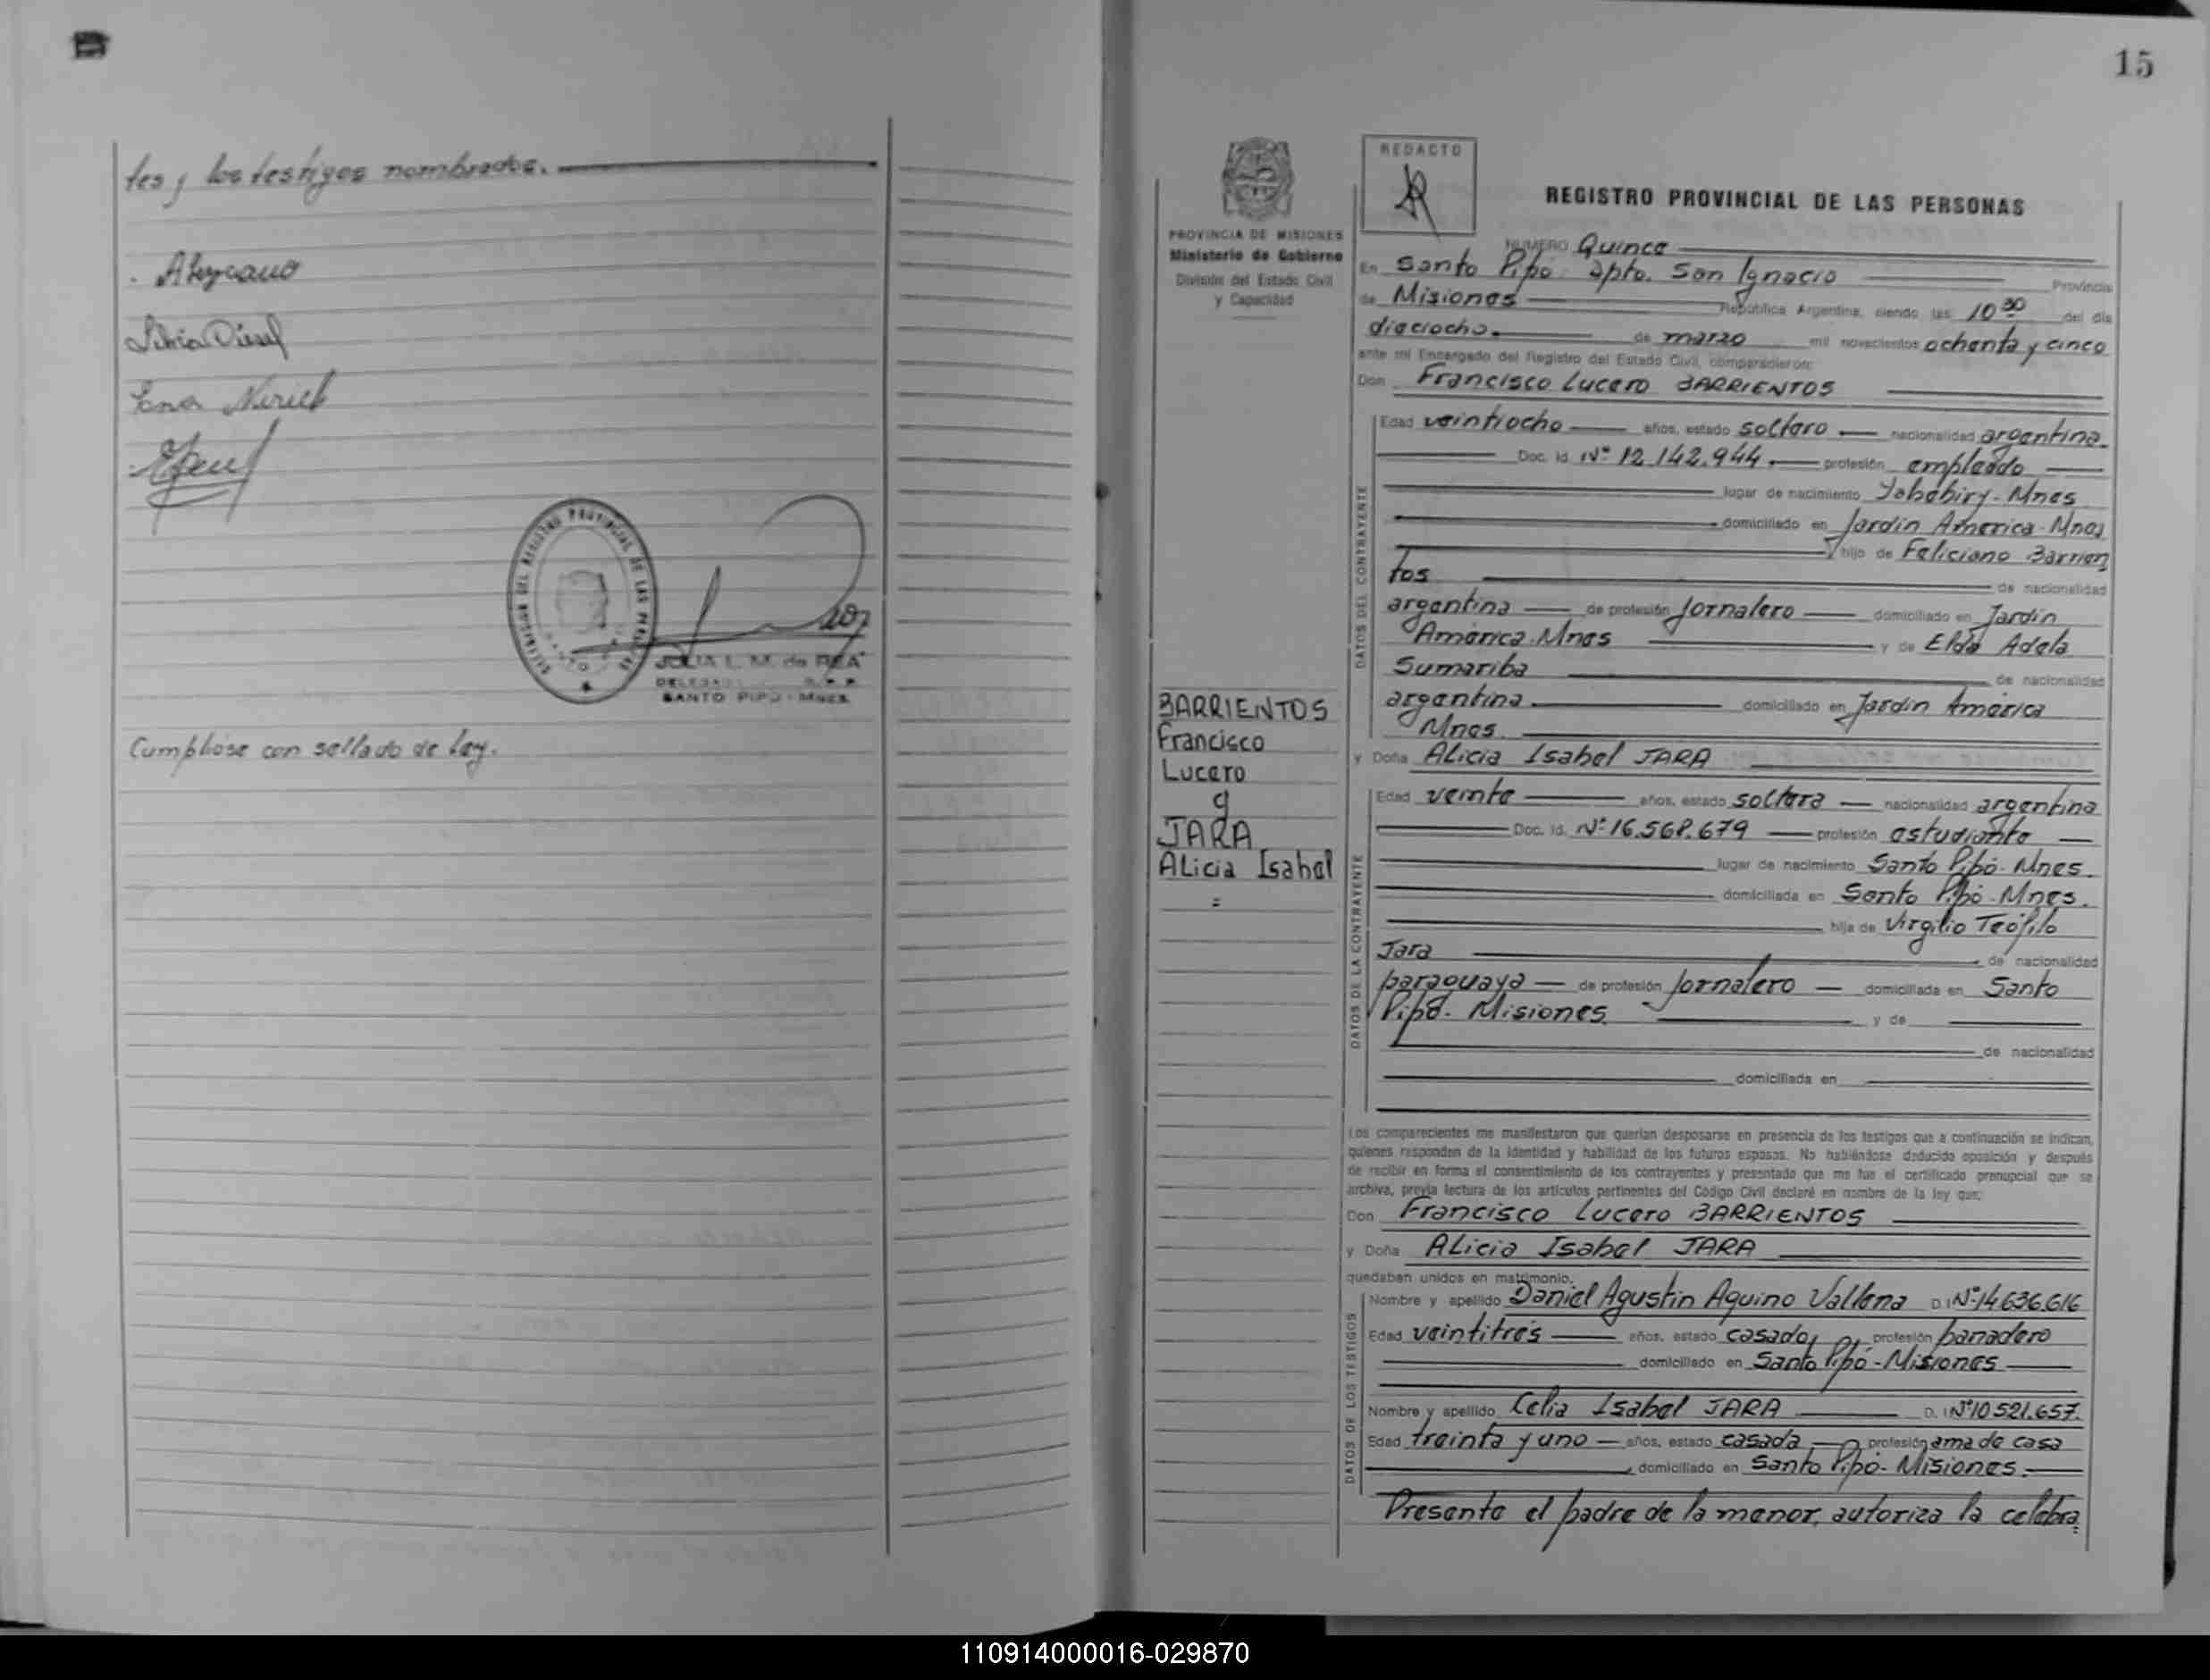 tes y los testigos nombrados.
Silvia Diesel
JULIA L. M. de REA
SANTO PIPO - MNES.
Cumpliose con sellado de ley.
15
REDACTO
PROVINCIA DE MISIONES
Ministerio de Gobierno
División del Estado Civil
y Capacidad
BARRIENTOS
Francisco
Lucero
y
JARA
Alicia Isabel
=
REGISTRO PROVINCIAL DE LAS PERSONAS
NUMERO Quince
En Santo Pipó dpto. San Ignacio Provincia
de Misiones República Argentina, siendo las 10 30 del día
dieciocho. de marzo mil novecientos ochenta y cinco
ante mi Encargado del Registro del Estado Civil, comparecieron:
Don Francisco Lucero BARRIENTOS
DATOS DEL CONTRAYENTE
Edad veintiocho años, estado soltero nacionalidad argentina.
Doc. Id. Nº 12.142.944. profesión empleado
lugar de nacimiento Yabebiry-Mnes
domiciliado en Jardín America-Mnes
hijo de Feliciano Barrien
tos de nacionalidad
argentina de profesión Jornalero domiciliado en Jardín
América.Mnes y de Elda Adela
Sumariba de nacionalidad
argentina. domiciliado en Jardín América
Mnes.
y Doña Alicia Isabel JARA
DATOS DE LA CONTRAYENTE
Edad veinte años, estado soltera nacionalidad argentina
Doc. Id. Nº 16.568.679 profesión estudiante
lugar de nacimiento Santo Pipó-Mnes.
domiciliada en Santo Pipó-Mnes.
hija de Virgilio Teófilo
Jara de nacionalidad
paraguaya de profesión Jornalero domiciliada en Santo
Pipó-Misiones y de
de nacionalidad
domiciliada en
Los comparecientes me manifestaron que querían desposarse en presencia de los testigos que a continuación se indican,
quienes responden de la identidad y habilidad de los futuros esposos. No habiéndose deducido oposición y después
de recibir en forma el consentimiento de los contrayentes y presentado que me fue el certificado prenupcial que se
archiva, previa lectura de los artículos pertinentes del Código Civil declaré en nombre de la ley que;
Don Francisco Lucero BARRIENTOS
y Doña Alicia Isabel JARA
quedaban unidos en matrimonio.
DATOS DE LOS TESTIGOS
Nombre y apellido Daniel Agustin Aquino Vallena D. I Nº 14.636.616
Edad veintitrés años, estado casado, profesión panadero
domiciliado en Santo Pipó-Misiones
Nombre y apellido Celia Isabel JARA D. I Nº 10.521.657.
Edad treinta y uno años, estado casada, profesión ama de casa
domiciliado en Santo Pipó-Misiones.
Presente el padre de la menor, autoriza la celebra
110914000016-029870